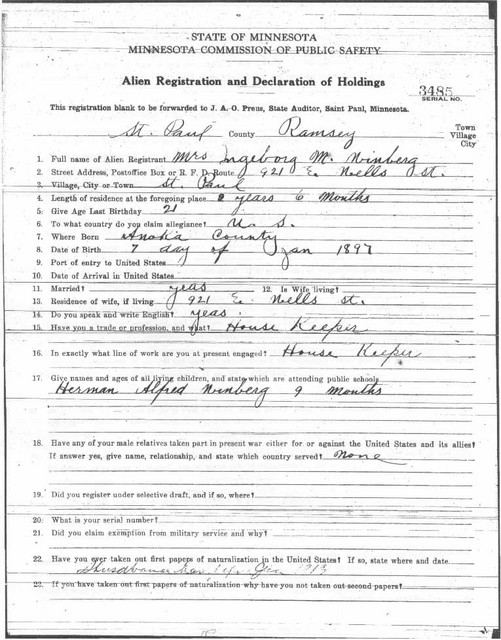 STATE OF MINNESOTA
MINNESOTA COMMISSION OF PUBLIC SAFETY
Alien Registration and Declaration of Holdings
3485
SERIAL NO.
This registration blank to be forwarded to J. A. O. Preus, State Auditor, Saint Paul, Minnesota.
St. Paul County Ramsey Town
Village
City
1. Full name of Alien Registrant Mrs Ingeborg M. Winberg
2. Street Address, Postoffice Box or R. F. D. Route 921 E. Wells st.
3. Village, City or Town St. Paul
4. Length of residence at the foregoing place years 6 Months
5. Give Age Last Birthday 21
6. To what country do you claim allegiance? U. S.
7. Where Born Anoka County
8. Date of Birth 7 day of Jan 1897
9. Port of entry to United States
10. Date of Arrival in United States
11. Married? yeas 12. Is Wife living?
13. Residence of wife, if living 921 E. Wells st.
14. Do you speak and write English? yeas.
15. Have you a trade or profession, and what? House Keeper
16. In exactly what line of work are you at present engaged? House Keeper
17. Give names and ages of all living children, and state which are attending public schools
Herman Alfred Winberg 9 months
18. Have any of your male relatives taken part in present war either for or against the United States and its allies?
If answer yes, give name, relationship, and state which country served? None
19. Did you register under selective draft, and if so, where?
20. What is your serial number?
21. Did you claim exemption from military service and why?
22. Have you ever taken out first papers of naturalization in the United States? If so, state where and date
23. If you have taken out first papers of naturalization why have you not taken out second papers?